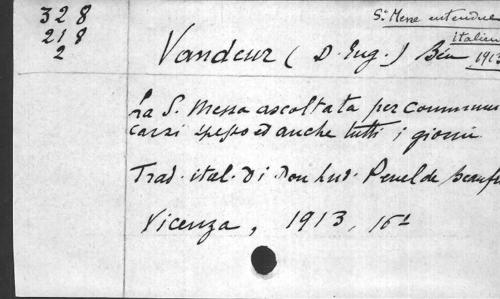 328
218
2
Ste Messe entendue
Italien
1913
Vandeur (D. Eug.) Bén
La S. Messa ascoltata per communi
carsi spesso ed anche tutti i giorni
Trad. ital. di Don Lud. Penel de
Vicenza, 1913, 16º